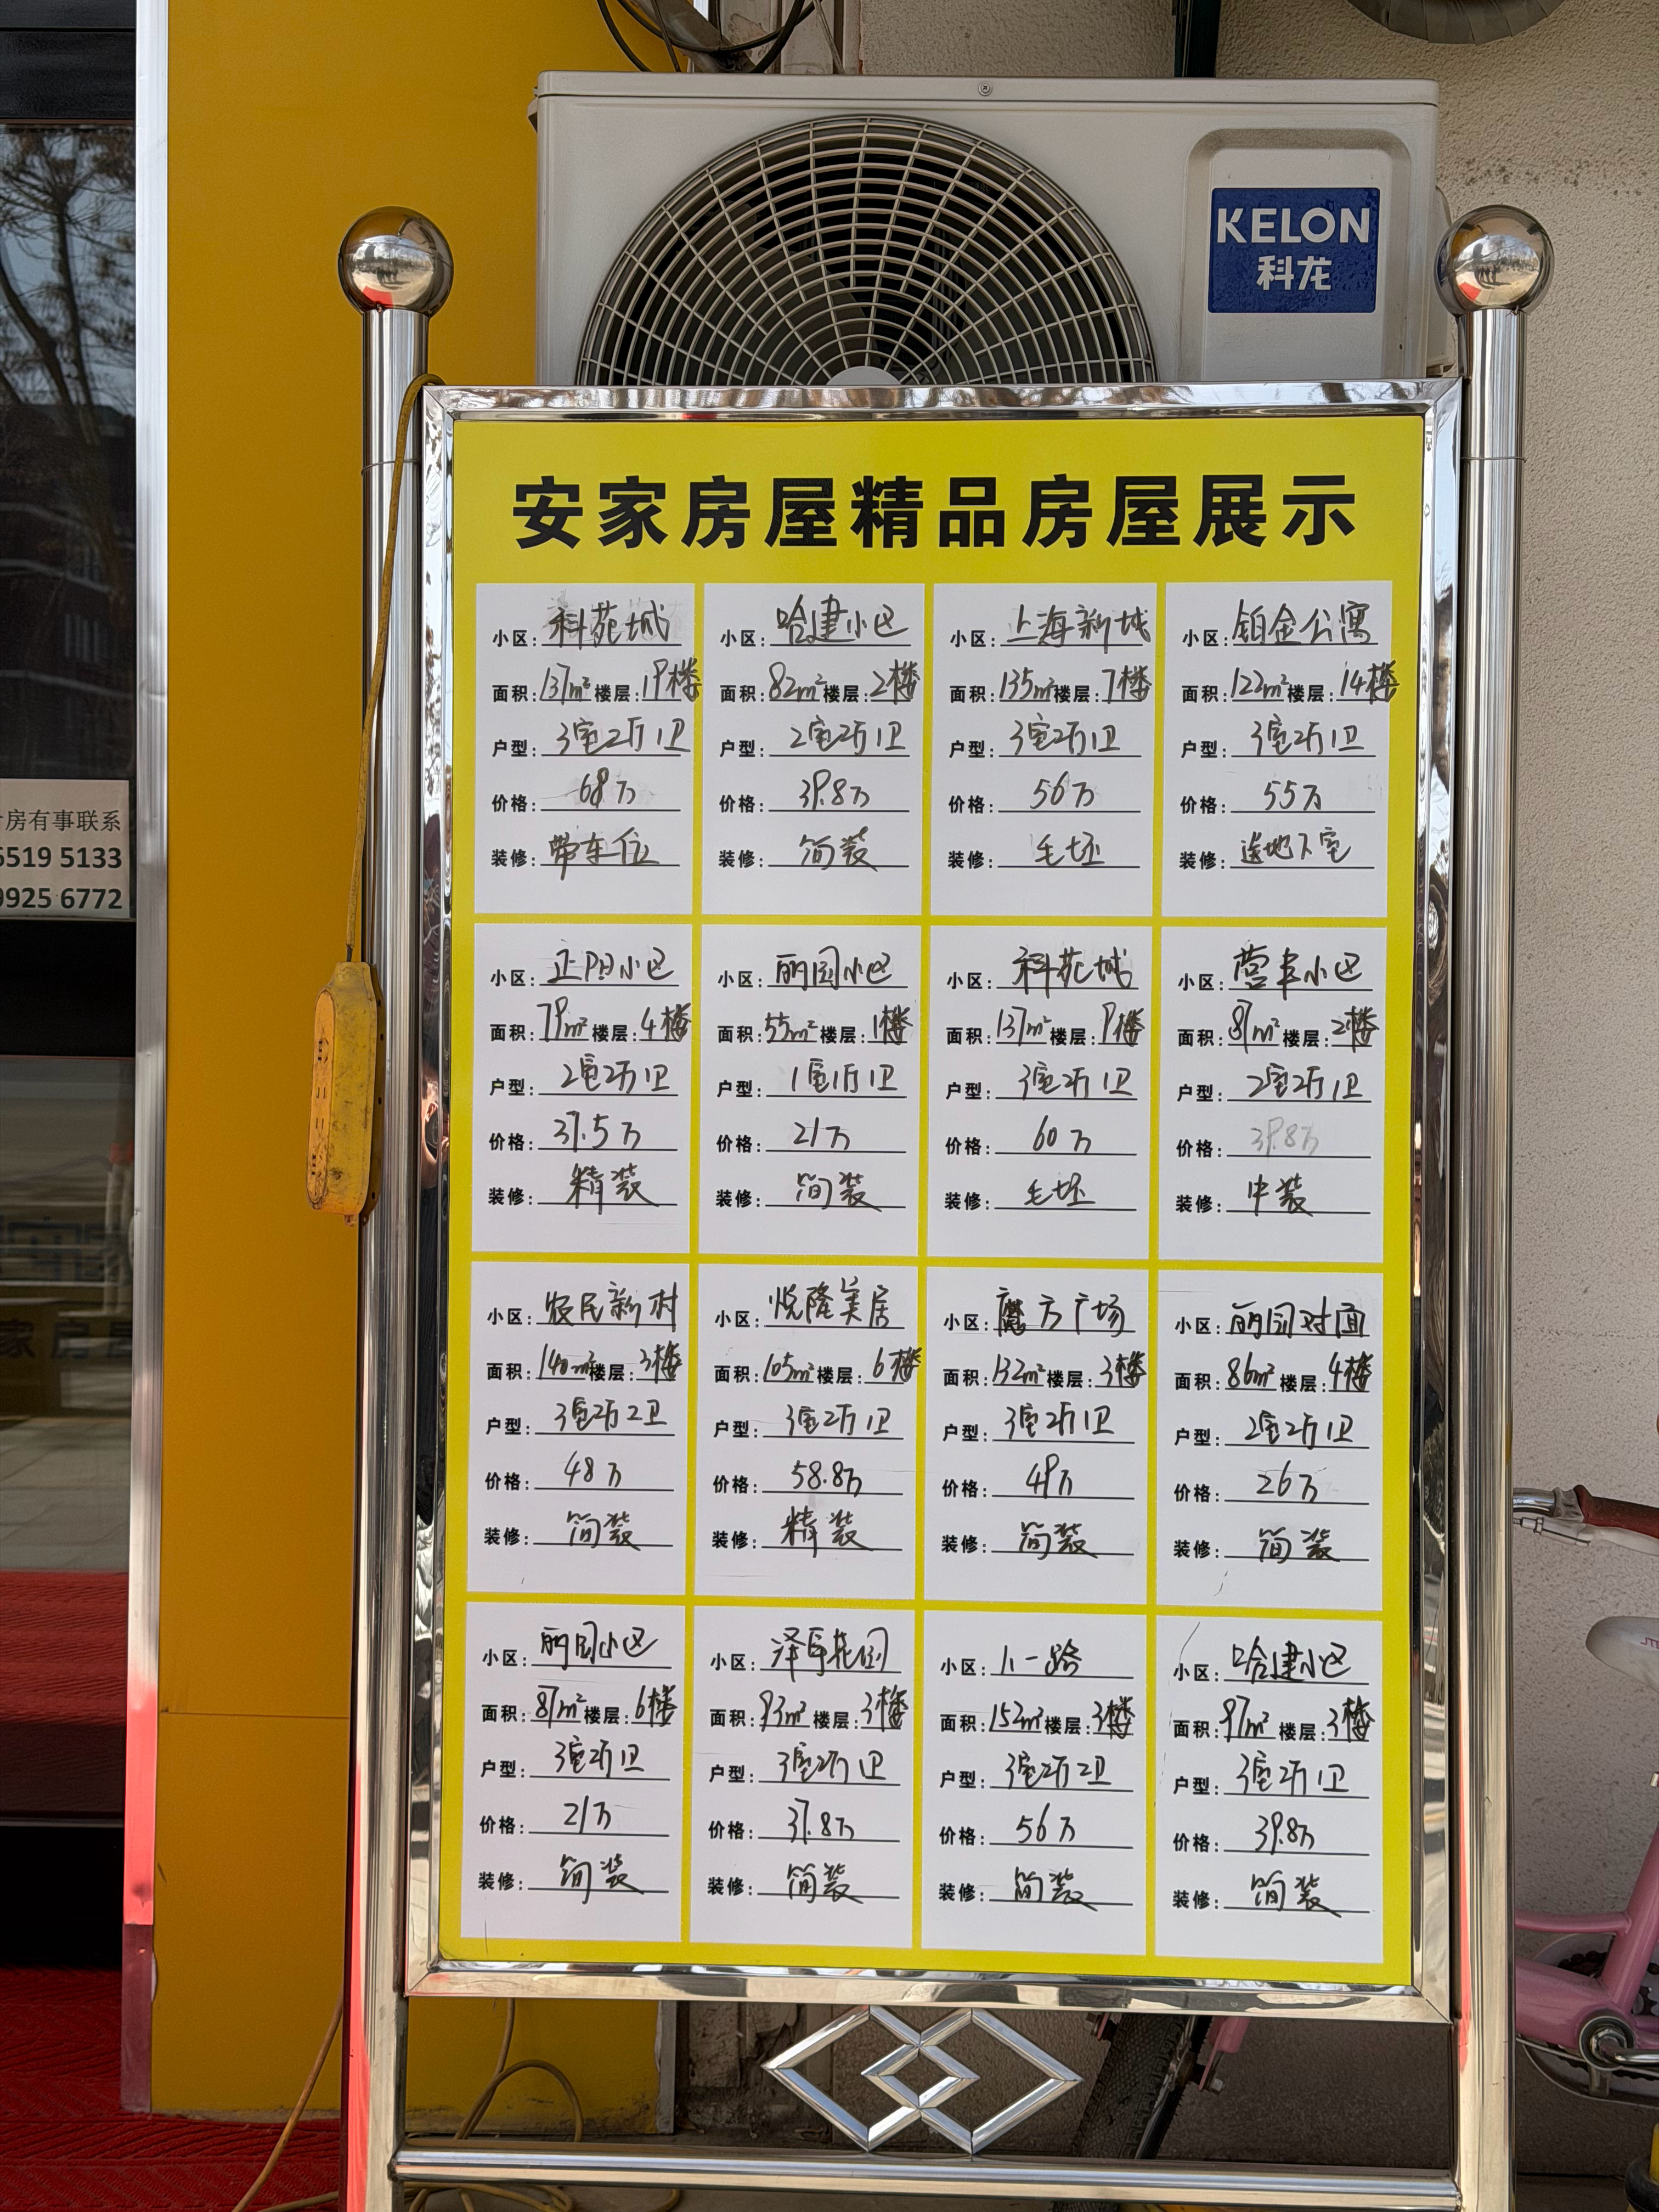 KELON
科龙
房有事联系
6519 5133
9925 6772
安家房屋精品房屋展示
小区：科苑城
面积：137m²楼层：19楼
户型：3室2厅1卫
价格：68万
装修：带车位
小区：哈建小区
面积：82m²楼层：2楼
户型：2室2厅1卫
价格：39.8万
装修：简装
小区：上海新城
面积：135m²楼层：7楼
户型：3室2厅1卫
价格：56万
装修：毛坯
小区：铂金公寓
面积：122m²楼层：14楼
户型：3室2厅1卫
价格：55万
装修：送地下室
小区：正阳小区
面积：79m²楼层：4楼
户型：2室2厅1卫
价格：37.5万
装修：精装
小区：丽园小区
面积：55m²楼层：1楼
户型：1室1厅1卫
价格：21万
装修：简装
小区：科苑城
面积：137m²楼层：9楼
户型：3室2厅1卫
价格：60万
装修：毛坯
小区：营丰小区
面积：87m²楼层：2楼
户型：2室2厅1卫
价格：39.8万
装修：中装
小区：农民新村
面积：140m²楼层：3楼
户型：3室2厅2卫
价格：48万
装修：简装
小区：悦隆美居
面积：105m²楼层：6楼
户型：3室2厅1卫
价格：58.8万
装修：精装
小区：魔方广场
面积：132m²楼层：3楼
户型：3室2厅1卫
价格：49万
装修：简装
小区：丽园对面
面积：86m²楼层：4楼
户型：2室2厅1卫
价格：26万
装修：简装
小区：丽园小区
面积：87m²楼层：6楼
户型：3室2厅1卫
价格：21万
装修：简装
小区：泽阜花园
面积：93m²楼层：3楼
户型：3室2厅1卫
价格：37.8万
装修：简装
小区：八一路
面积：152m²楼层：3楼
户型：3室2厅2卫
价格：56万
装修：简装
小区：哈建小区
面积：97m²楼层：3楼
户型：3室2厅1卫
价格：39.8万
装修：简装